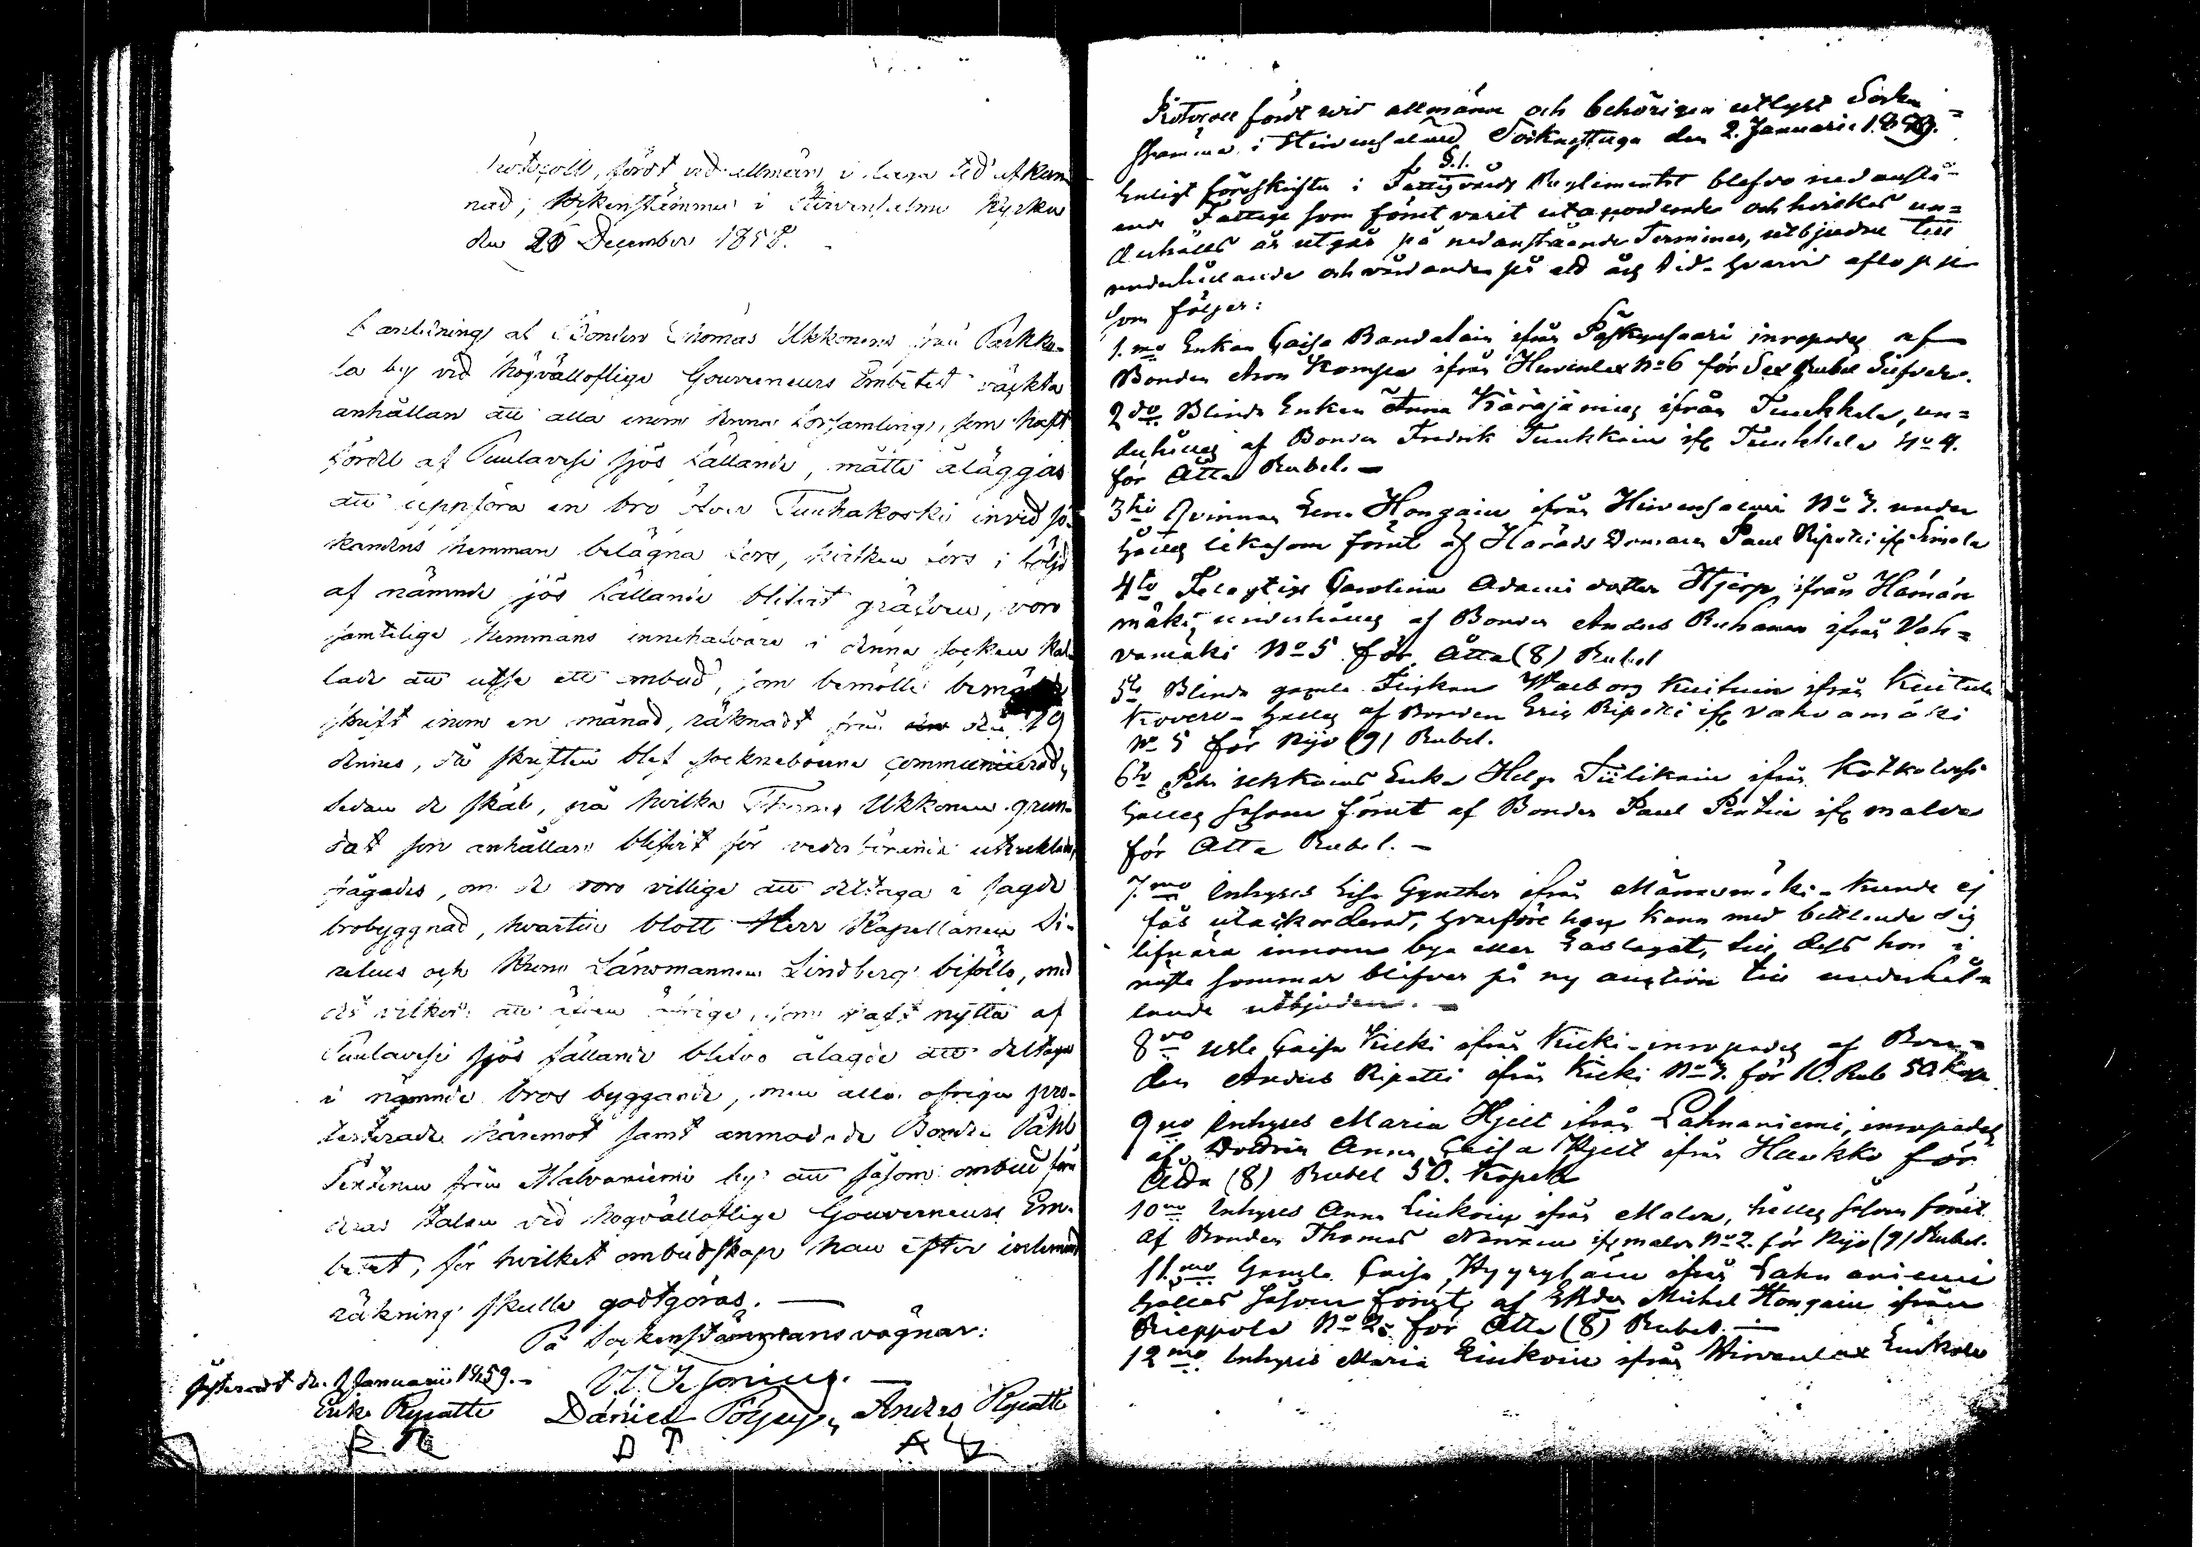 Protocoll, fördt vid allmän, i laga tid utkun-
nad, Sockenstämma i Hirvensalmi kyrka
den 26 December 1858.
I anledning af Bonden Thomas Ukkonens från Parkka-
la by vid Högvällofliga Gouverneurs Embetet väckta
anhållan att alla inom denna församling, som haft
fördel af Puulavesi sjös fällande, måtte åläggas
att uppföra en bro öfver Tuuhakoski invid sö-
kandens hemman belägna fors, hvilken fors i följd
af nämnde sjös fällande blifvit gräfven, voro
samtelige hemmans innehafvare i denna socken kal-
lade att utse ett ombud, som bemälte
skrift inom en månad, räknadt från den 19
dennes, då skriften blef sockneboerne communicerad,
Sedan de skäl, på hvilka Thomas Ukkonen grun-
dat sin anhållan blifvit för vederbörande utvecklade,
frågades, om de voro villige att deltaga i sagde
brobyggnad, hvartill blott Herr Kapellanen Si-
relius och Herr Länsmannen Lindberg biföllo, med
det vilkor att äfven öfrige, som haft nytta af
Puulavesi sjös fällande blefvo ålagde att deltaga
i nämnde bros byggande, men alla öfriga pro-
testerade häremot samt anmodade Bonden Påhl
Pentinen från Malvaniemi by att såsom ombud föra
deras talan vid Högvällofliga Gouverneurs Em-
betet, för hvilket ombudskap han efter inlemnad
räkning skulle godtgöras. —
På Sockenstämmans vägnar:
Justeradt den 2 Januarii 1859. -
Erik Ripatti Daniel Anders Ripatti
E R D T A R
Protocoll fördt wid allmänna och behörigen utlyst Socken-
stämma i Hirvensalmi Sockenstuga den 2. Januarii 1859.
§.1.
Enligt föreskrifter i Fattigvårds Reglementet blefvo nedanstå-
ende Fattige som förut varit utaccorderade och hvilkas un-
derhålls år utgår på nedanstående Terminer, utbjudne till
underhållande och vårdande på ett års tid - hvarvid aflopp
som följer:
1.mo Enkan Caisa Bandalain ifrån Pöyrynsaari inropades af
Bonden Aron Kompa ifrån Hirvenlax No 6 för Sex Rubel Silfver.
2do Blinda Enkan Anna Käräjämies ifrån Tuukkala, un-
derhålles af Bonden Fredrik Tuukkain ifr Tuukkala No 4.
för Åtta Rubel. —
3tio Qvinnan Lena Hongain ifrån Hirvensalmi No 7. under
hålles likasom förut af Härads Domaren Paul Ripatti ifr
4to Carolina Adami dotter Hjerp ifrån Hämän
mäki, underhålles af Bonden Anders Ruhanen ifrån Vah-
vamäki No 5 för Åtta (8) Rubel
5to Blinda gamla Flickan Walborg Kuituin ifrån Kuitula
Kovero - hålles af Bonden Eric Ripatti ifr Vahvamäki
No 5 för Nijo (9) Rubel.
6to Enka Helga Tiilikain ifrån Kotkatvesi
hålles såsom förut af Bonden Paul Pentin ifr malva
för Åtta Rubel. —
7.mo Inhyses Lisa Gynther ifrån Männimäki - kunde ej
fås utackorderad, hvarföre hon kann med bettlande sig
lifnära innom bya eller Laslaget, till dess hon i
nästa sommar blifver på ny auction till underhål-
lande utbjuden. —
8vo Usle Caisa Kiiki ifrån Kiiki - inropades af Bon-
den Anders Ripatti ifrån Kiiki No 7. för 10. Rub 50 Kop
9no Inhyses Maria Hjelt ifrån Lahnaniemi, inropades
af Dottren Anna Caisa Hjelt ifrån Haukko för
Åtta (8) Rubel 50. Kopek
10mo Inhyses Anna Liukoin ifrån Malva, hålles såsom förut
af Bonden Thomas ifr malva No 2. för Nijo (9) Rubel.
11.mo Gamla Caisa Hyyryläin ifrån Lahnaniemi
hålles såsom förut, af Michel Hongain ifrån
No 2. för Åtta (8) Rubel. —
12mo Inhyses Maria Liukoin ifrån Hirvenlax Liukola